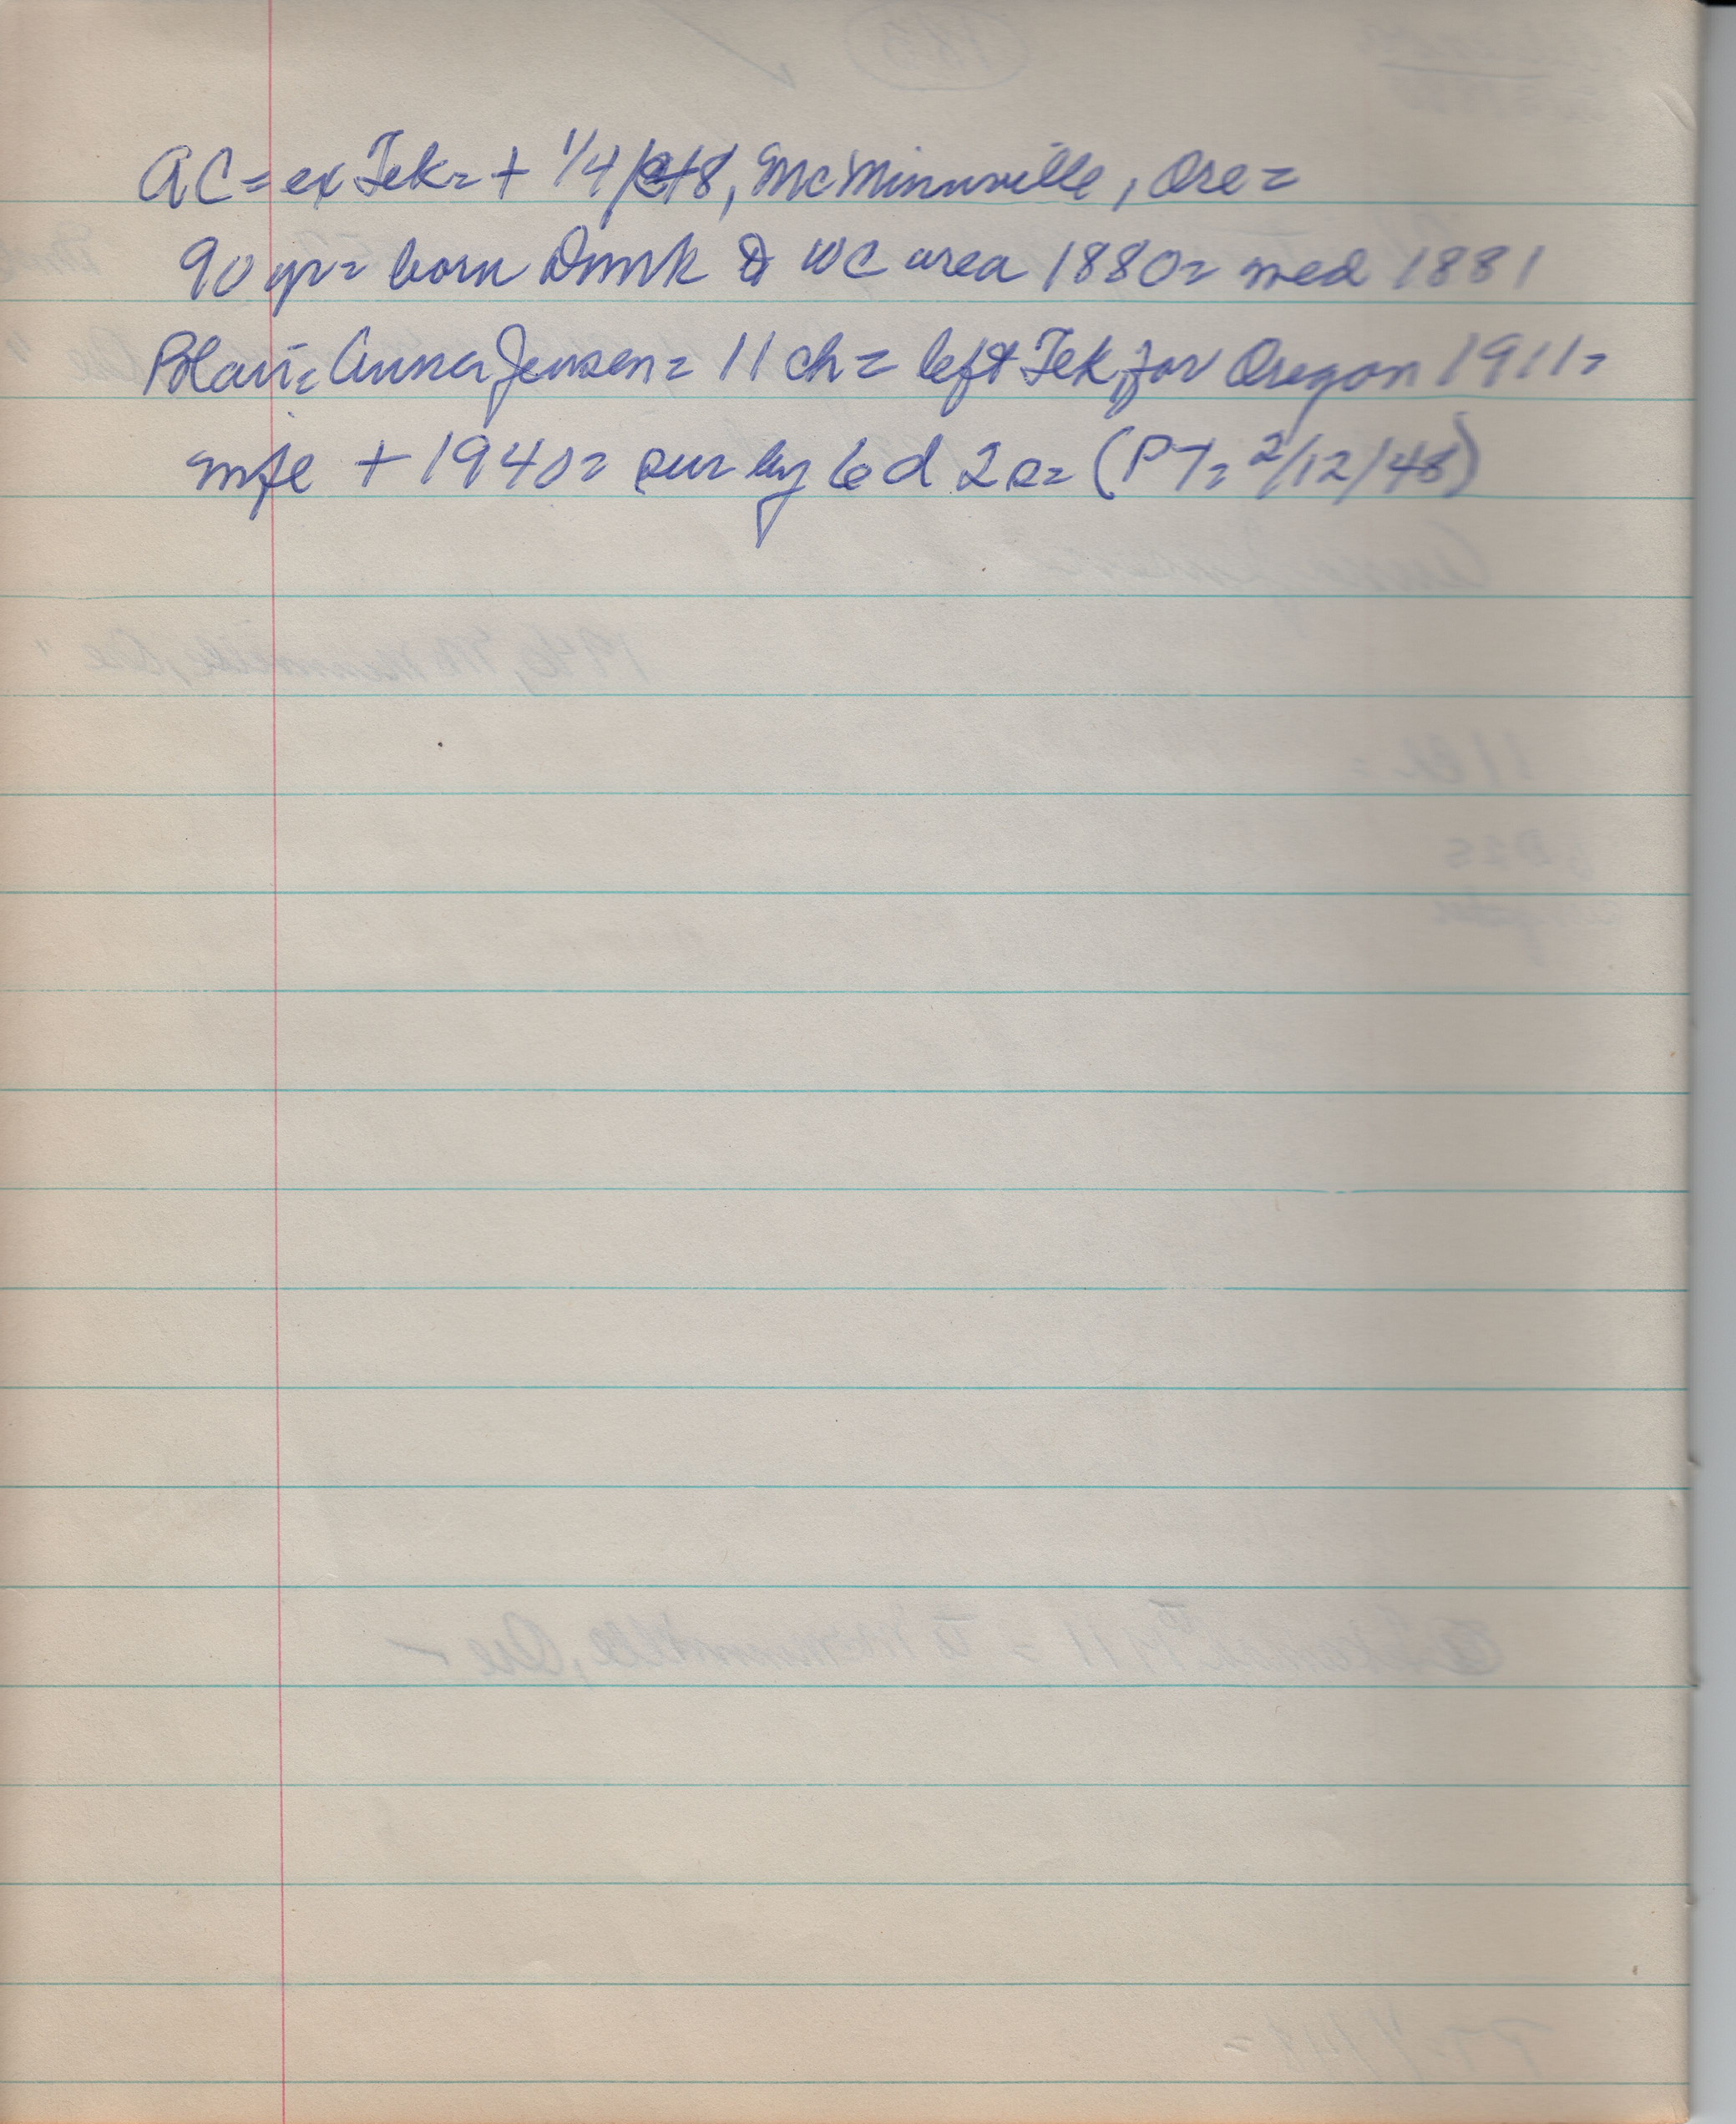 AC = ex Tek = + 1/4/48, McMinnville, Ore =
90 yr = born Dnmk & WC area 1880 = med 1881
Blair = Anna Jensen = 11 ch = left Tek for Oregon 1911 =
mfe + 1940 = sur by 6 d 2 s = (PT = 2/12/48)